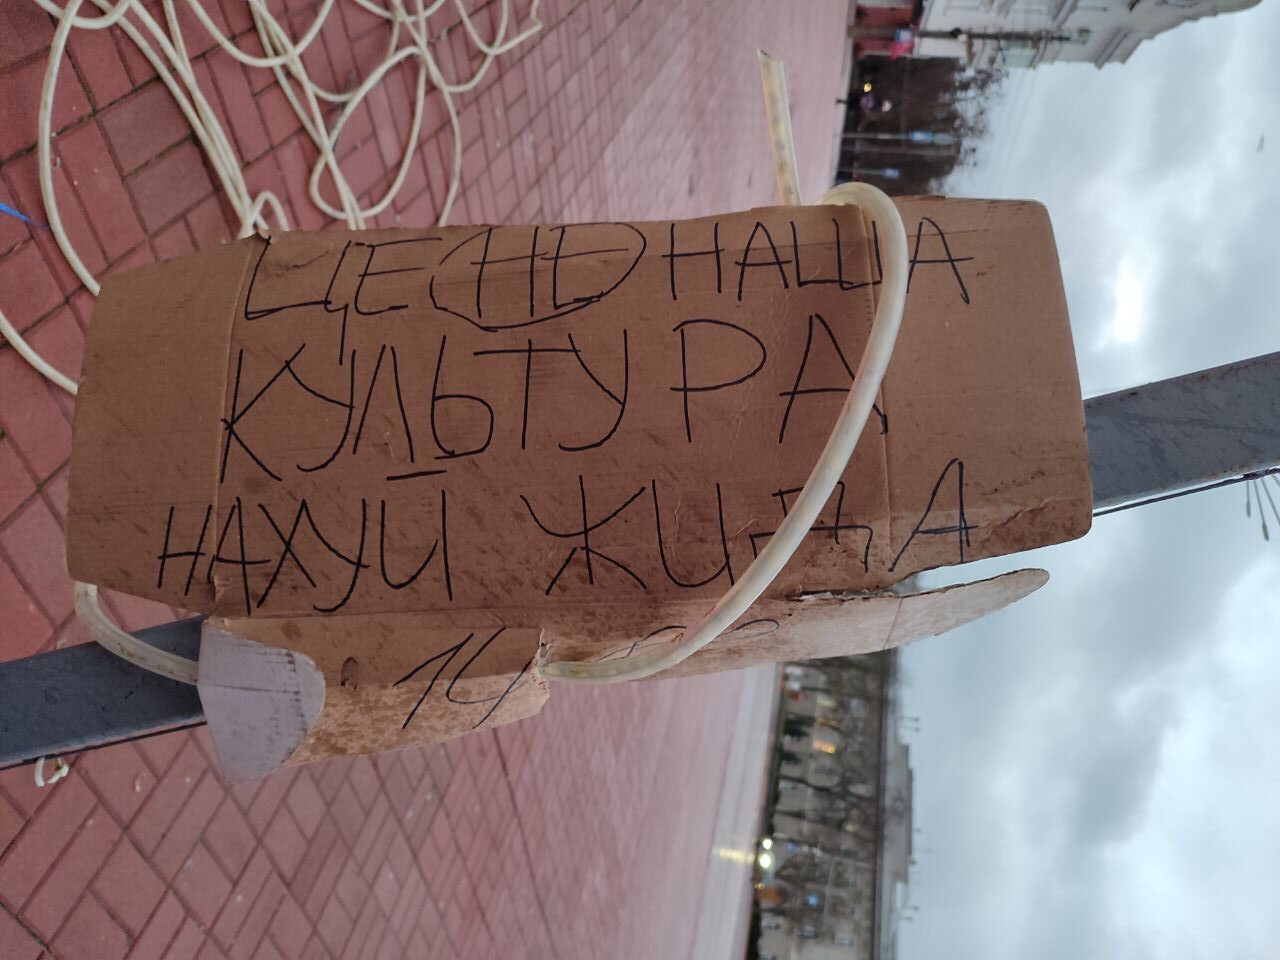 ЦЕ НЕ НАША
КУЛЬТУРА
НАХУЙ ЖИДА
14